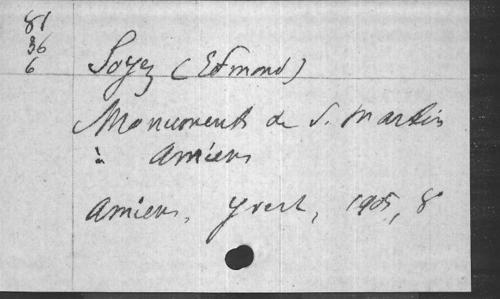 81
36
6
Soyez (Edmond)
Monuments de S. Martin
à Amiens
Amiens, Yvert, 1905, 8